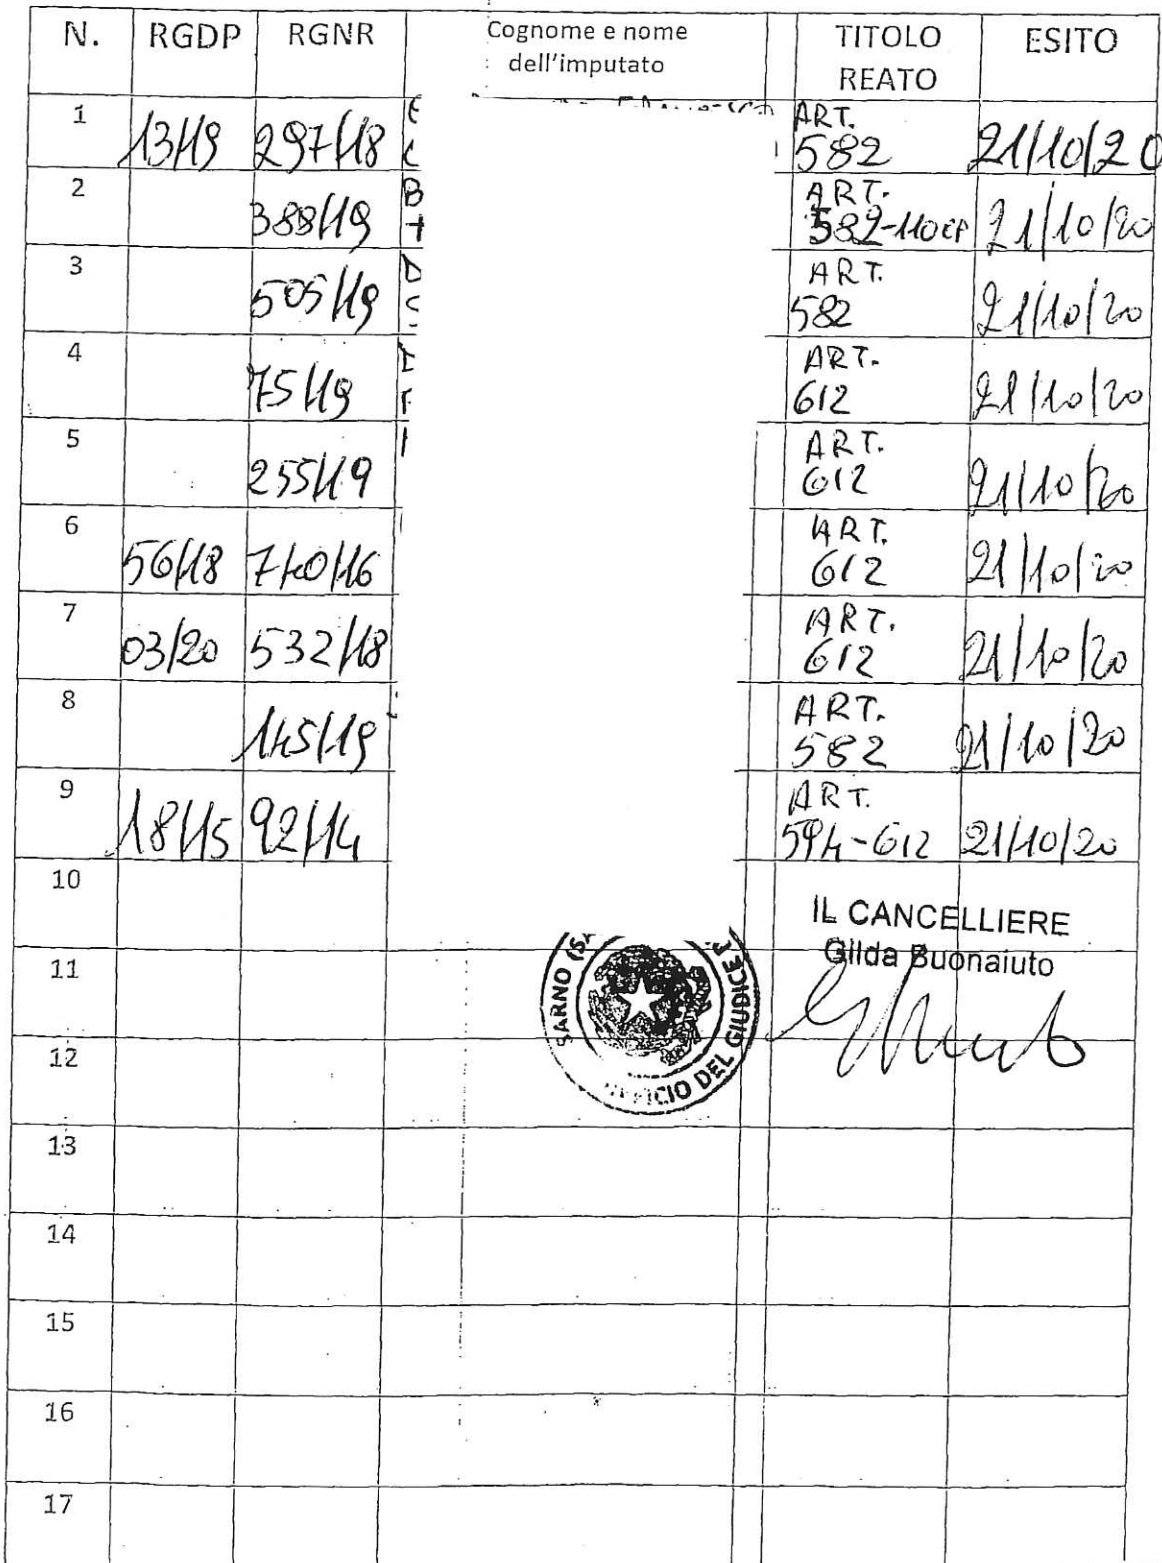 N. RGDP RGNR Cognome e nome TITOLO ESITO
dell'imputato REATO
1 13/19 297/18 ART. 582 21/10/20
2 388/19 ART. 582-110 CP 21/10/20
3 505/19 ART. 582 21/10/20
4 75/19 ART. 612 21/10/20
5 255/19 ART. 612 21/10/20
6 56/18 740/16 ART. 612 21/10/20
7 03/20 532/18 ART. 612 21/10/20
8 145/19 ART. 582 21/10/20
9 18/15 92/14 ART. 594-612 21/10/20
10
IL CANCELLIERE
Gilda Buonaiuto
11
SARNO (SA
DEL GIUDICE
12
13
14
15
16
17